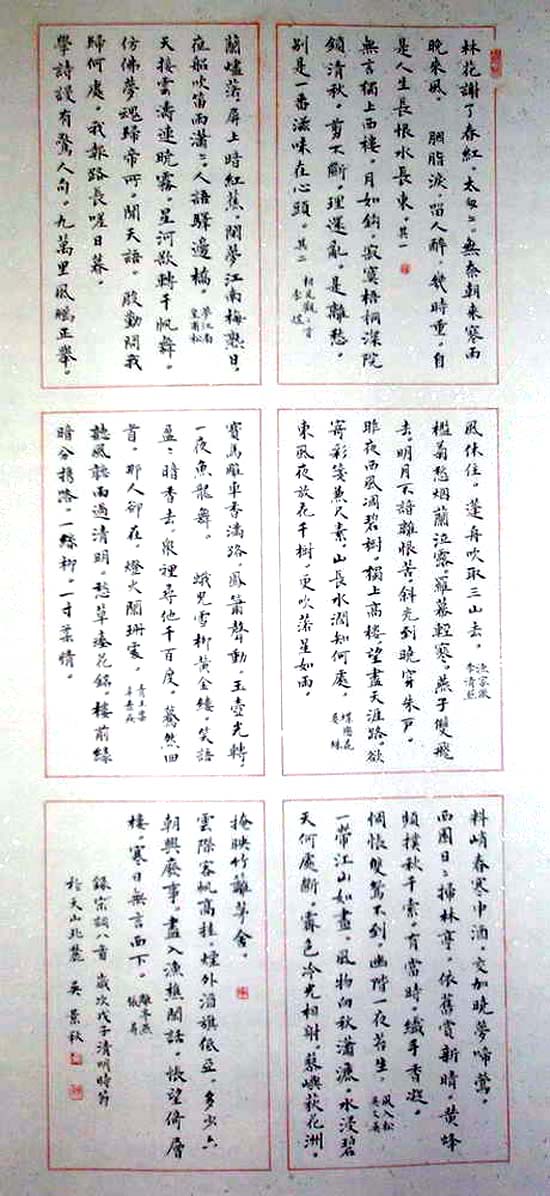 林花謝了春紅。太匆々。無奈朝來寒雨
晚來風。 胭脂淚。留人醉。幾時重。自
是人生長恨水長東。其一
無言獨上西樓。月如鉤。寂寞梧桐深院
鎖清秋。剪不斷。理還亂。是離愁。
別是一番滋味在心頭。其二 相見歡二首 李煜
蘭燼落。屏上暗紅蕉。閒夢江南梅熟日。
夜船吹笛雨瀟々。人語驛邊橋。夢江南 皇甫松
天接雲濤連曉霧。星河欲轉千帆舞。
仿佛夢魂歸帝所。聞天語。殷勤問我
歸何處。我報路長嗟日暮。
學詩謾有驚人句。九萬里風鵬正舉。
風休住。蓬舟吹取三山去。漁家傲 李清照
檻菊愁烟蘭泣露。羅幕輕寒。燕子雙飛
去。明月不諳離恨苦。斜光到曉穿朱戶。
昨夜西風凋碧樹。獨上高樓望盡天涯路。欲
寄彩箋兼尺素。山長水闊知何處。蝶戀花 晏殊
東風夜放花千樹。更吹落星如雨。
寶馬雕車香滿路。鳳簫聲動。玉壺光轉。
一夜魚龍舞。 蛾兒雪柳黃金縷。笑語
盈々暗香去。眾裡尋他千百度。驀然回
首。那人卻在。燈火闌珊處。青玉案 辛棄疾
聽風聽雨過清明。愁草瘞花銘。樓前綠
暗分攜路。一絲柳。一寸柔情。
料峭春寒中酒。交加曉夢啼鶯。
西園日々掃林亭。依舊賞新晴。黃蜂
頻撲秋千索。有當時。纖手香凝。
惆悵雙鴛不到。幽階一夜苔生。風入松 吳文英
一帶江山如畫。風物向秋瀟灑。水浸碧
天何處斷。霽色冷光相射。蓼嶼荻花洲。
掩映竹籬茅舍。
雲際客帆高挂。煙外酒旗低亞。多少六
朝興廢事。盡入漁樵閒話。悵望倚層
樓。寒日無言西下。離亭燕 張昇
錄宋詞八首 歲次戊子清明時節
於天山北麓 吳景秋